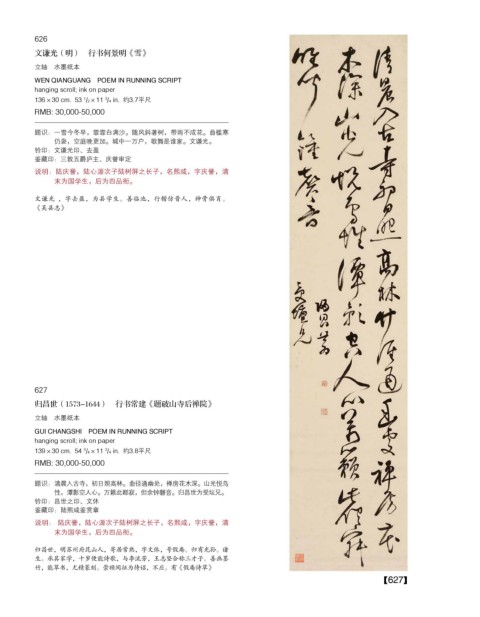 626
文谦光（明）　行书何景明《雪》
立轴　水墨纸本
WEN QIANGUANG　POEM IN RUNNING SCRIPT
hanging scroll; ink on paper
136×30 cm.  53 1/2×11 3/4 in.  约3.7平尺
RMB: 30,000-50,000
题识：一雪今冬早，霏霏白满沙。随风斜著树，带雨不成花。
仍杂，空庭晚更加。城中一万户，歌舞是谁家。文谦光。
钤印：文谦光印、去盈
鉴藏印：三教五爵庐主、庆誉审定
说明：陆庆誉，陆心源次子陆树屏之长子，名熙咸，字庆誉，清
末为国学生，后为四品衔。
文谦光，字去盈，为县学生。善临池，行楷仿昔人，神骨俱肖。
《吴县志》
627
归昌世（1573-1644）　行书常建《题破山寺后禅院》
立轴　水墨纸本
GUI CHANGSHI　POEM IN RUNNING SCRIPT
hanging scroll; ink on paper
139×30 cm.  54 3/4×11 3/4 in.  约3.8平尺
RMB: 30,000-50,000
题识：清晨入古寺，初日照高林。曲径通幽处，禅房花木深。山光悦鸟
性，潭影空人心。万籁此都寂，但余钟磬音。归昌世为受坛兄。
钤印：昌世之印、文休
鉴藏印：陆熙咸鉴赏章
说明：陆庆誉，陆心源次子陆树屏之长子，名熙咸，字庆誉，清
末为国学生，后为四品衔。
归昌世，明苏州府昆山人，寄居常熟，字文休，号假庵。归有光孙。诸
生。承其家学，十岁便能诗歌，与李流芳、王志坚合称三才子。善画墨
竹，能草书，尤精篆刻。崇祯间征为待诏，不应。有《假庵诗草》
【627】